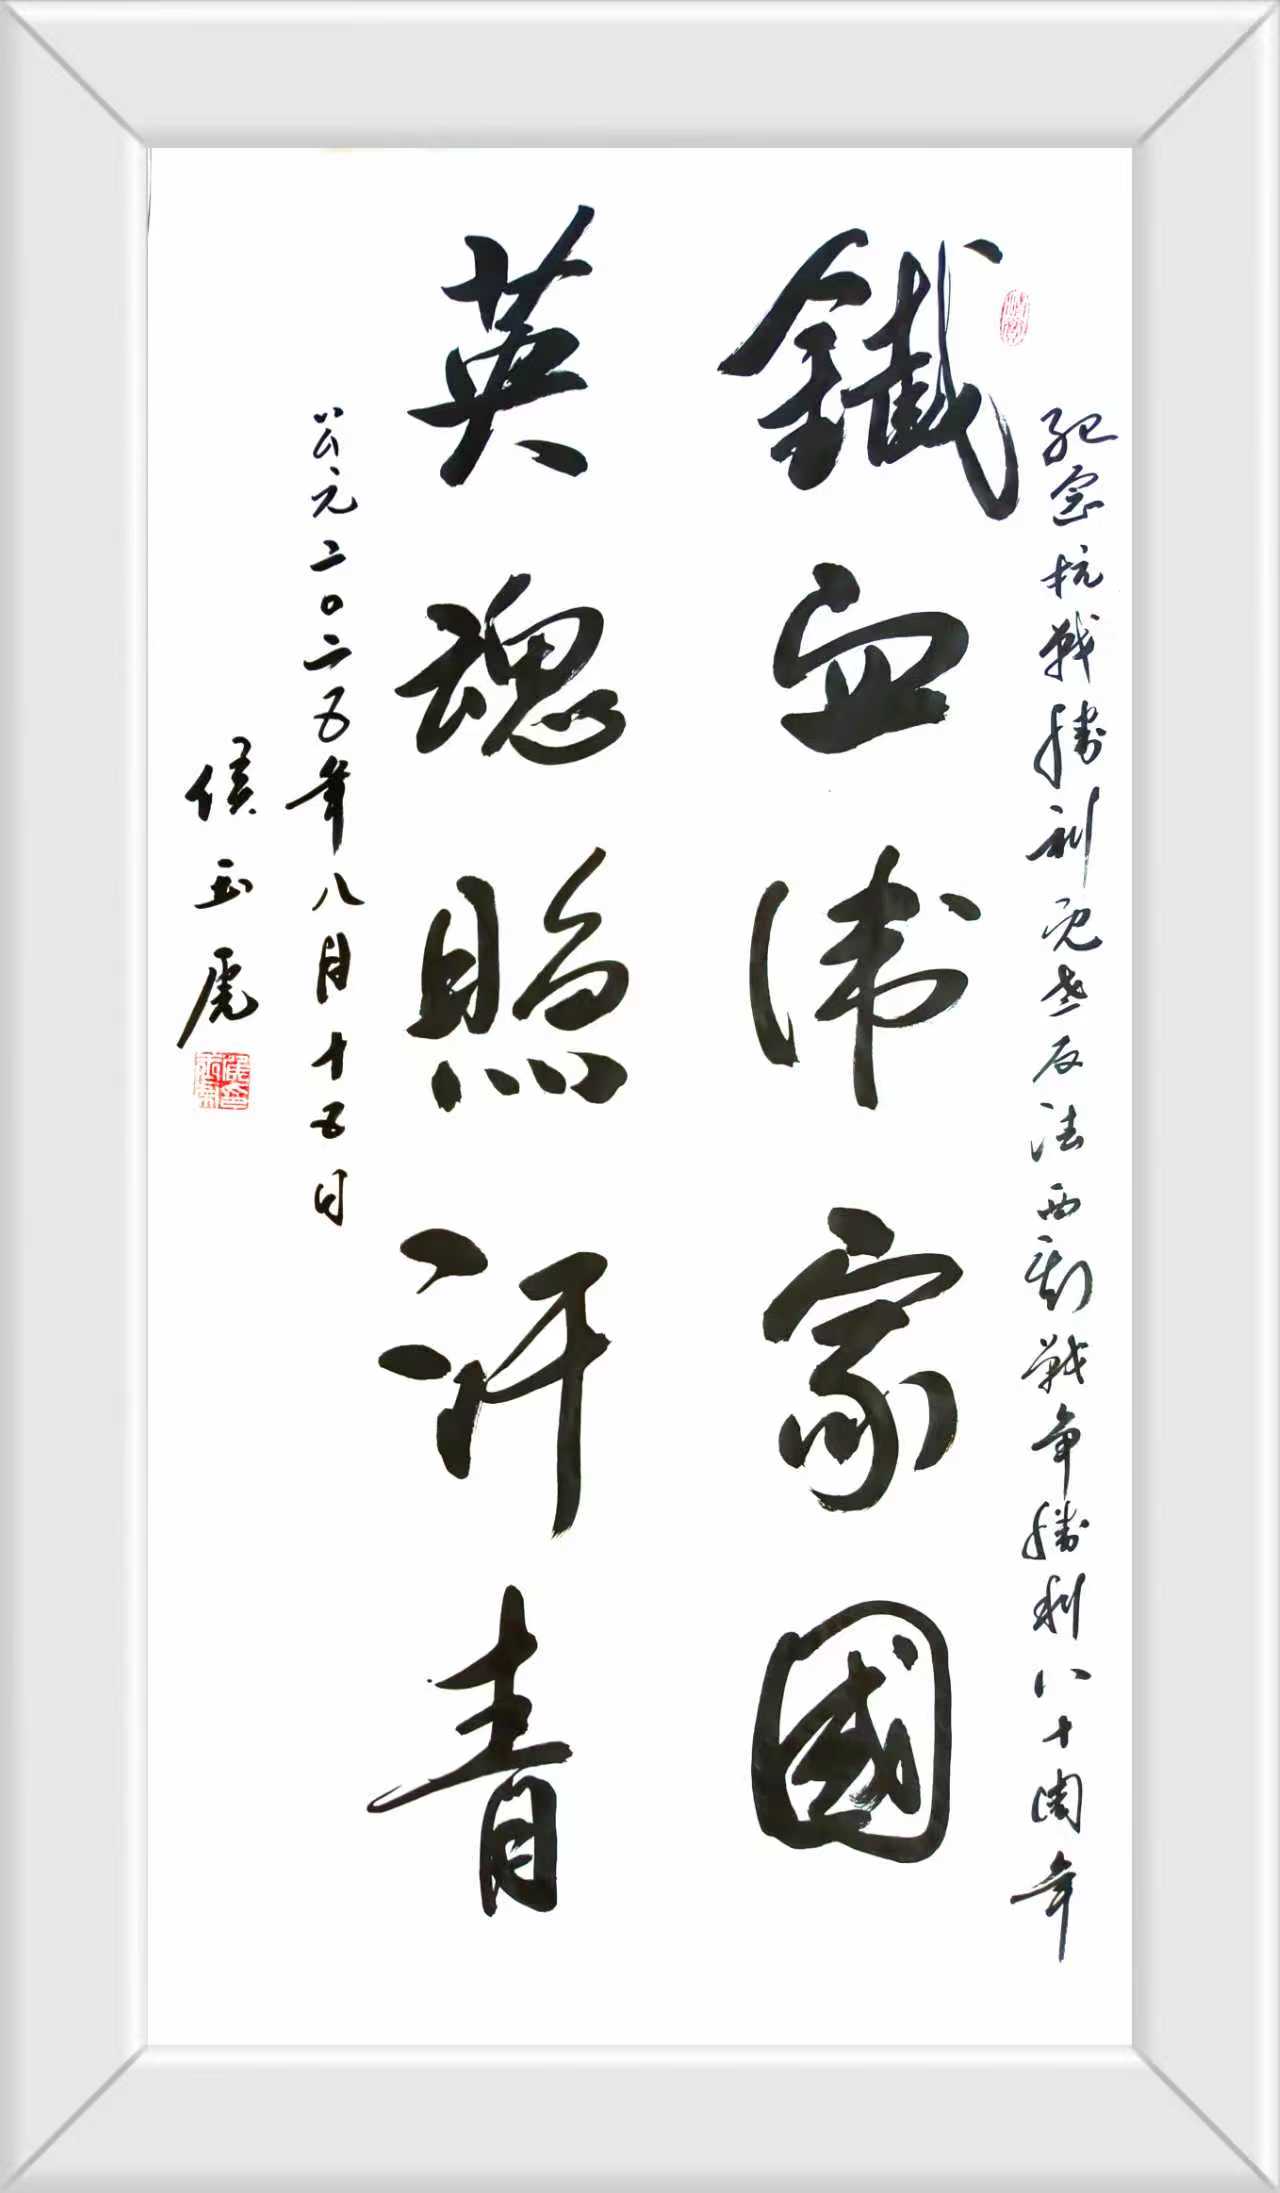 紀念抗戰勝利暨世界反法西斯戰争勝利八十周年
鐵血衛家國
英魂照汗青
公元二〇二五年八月十五日
侯玉虎